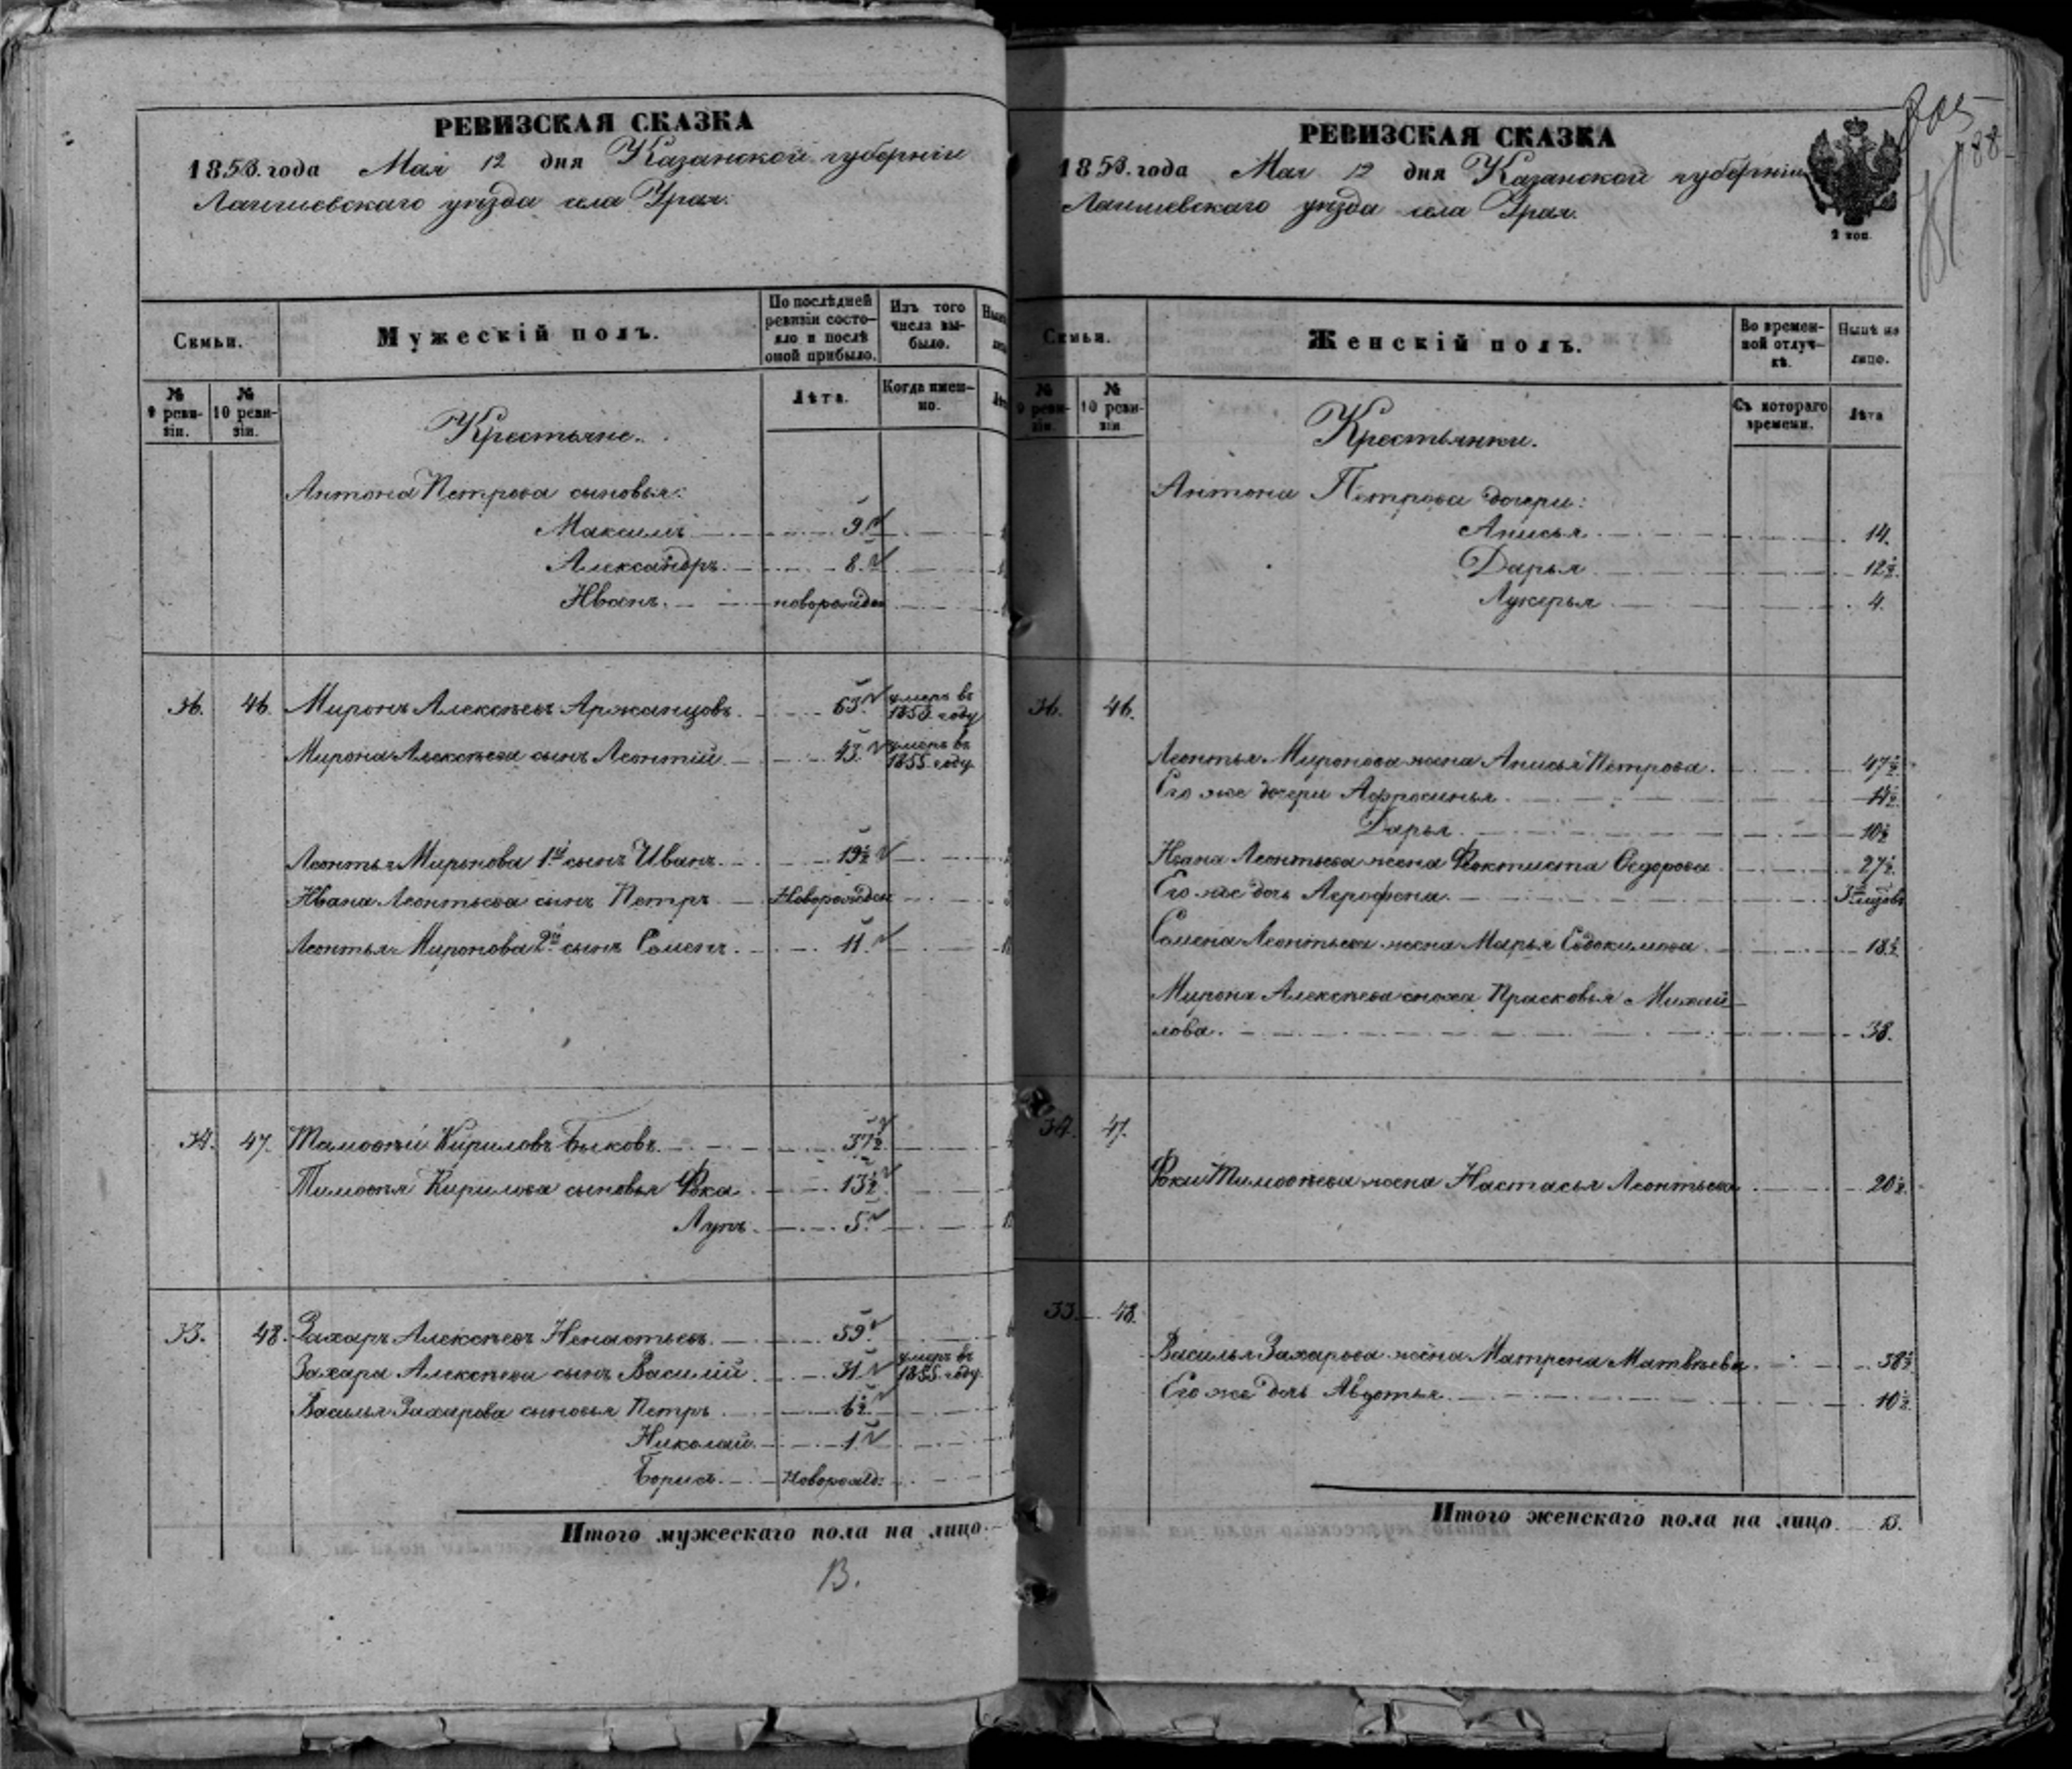 РЕВИЗСКАЯ СКАЗКА
1858. года Мая 12 дня Казанской губернiи
Лаишевскаго уѣзда села Урая.
Семьи.
Мужескiй полъ.
По послѣдней ревизiи состояло и послѣ оной прибыло.
Изъ того числа выбыло.
№ 9 ревизiи.
№ 10 ревизiи.
Лѣта.
Когда именно.
Крестьяне.
Антона Петрова сыновья:
Максимъ 9.
Александръ 8.
Иванъ. новорожден
36. 46. Миронъ Алексѣевъ Аржанцовъ. 63. умеръ въ 1853. году
Мирона Алексѣева сынъ Леонтiй 43. умеръ въ 1855. году
Леонтья Миронова 1й сынъ Иванъ. 19½
Ивана Леонтьева сынъ Петръ Новорожден
Леонтья Миронова 2й сынъ Семенъ. 11.
34. 47. Тимофѣй Кириловъ Быковъ. 37½
Тимофѣя Кирилова сыновья Фока 13½
Лупъ. 5.
33. 48. Захаръ Алексѣевъ Ненастьевъ. 59.
Захара Алексѣева сынъ Василiй 31 умеръ въ 1855. году.
Василья Захарова сыновья Петръ 6½
Николай. 1.
Борисъ. Новорожд:
Итого мужескаго пола на лицо.
13.
РЕВИЗСКАЯ СКАЗКА
1858. года Мая 12 дня Казанской губернiи
Лаишевскаго уѣзда села Урая.
2 коп.
Семьи.
Женскiй полъ.
Во временной отлучкѣ.
Нынѣ на лицо.
№ 9 ревизiи.
№ 10 ревизiи
Съ котораго времени.
Лѣта
Крестьянки.
Антона Петрова дочери:
Анисья 14.
Дарья 12½.
Лукерья 4.
36. 46.
Леонтья Миронова жена Анисья Петрова. 47½
Его же дочери Афросинья 14½
Дарья. 10½
Ивана Леонтьева жена Феоктиста Федорова 27½
Его же дочь Агрофена. 3 мѣсяцовъ
Семена Леонтьева жена Марья Евдокимова 18½
Мирона Алексѣева сноха Прасковья Михай-
лова. 38.
34. 47.
Фоки Тимофѣева жена Настасья Леонтьева 20½.
33. 48.
Василья Захарова жена Матрена Матвѣева. 38½
Его же дочь Авдотья 10½.
Итого женскаго пола на лицо 13.